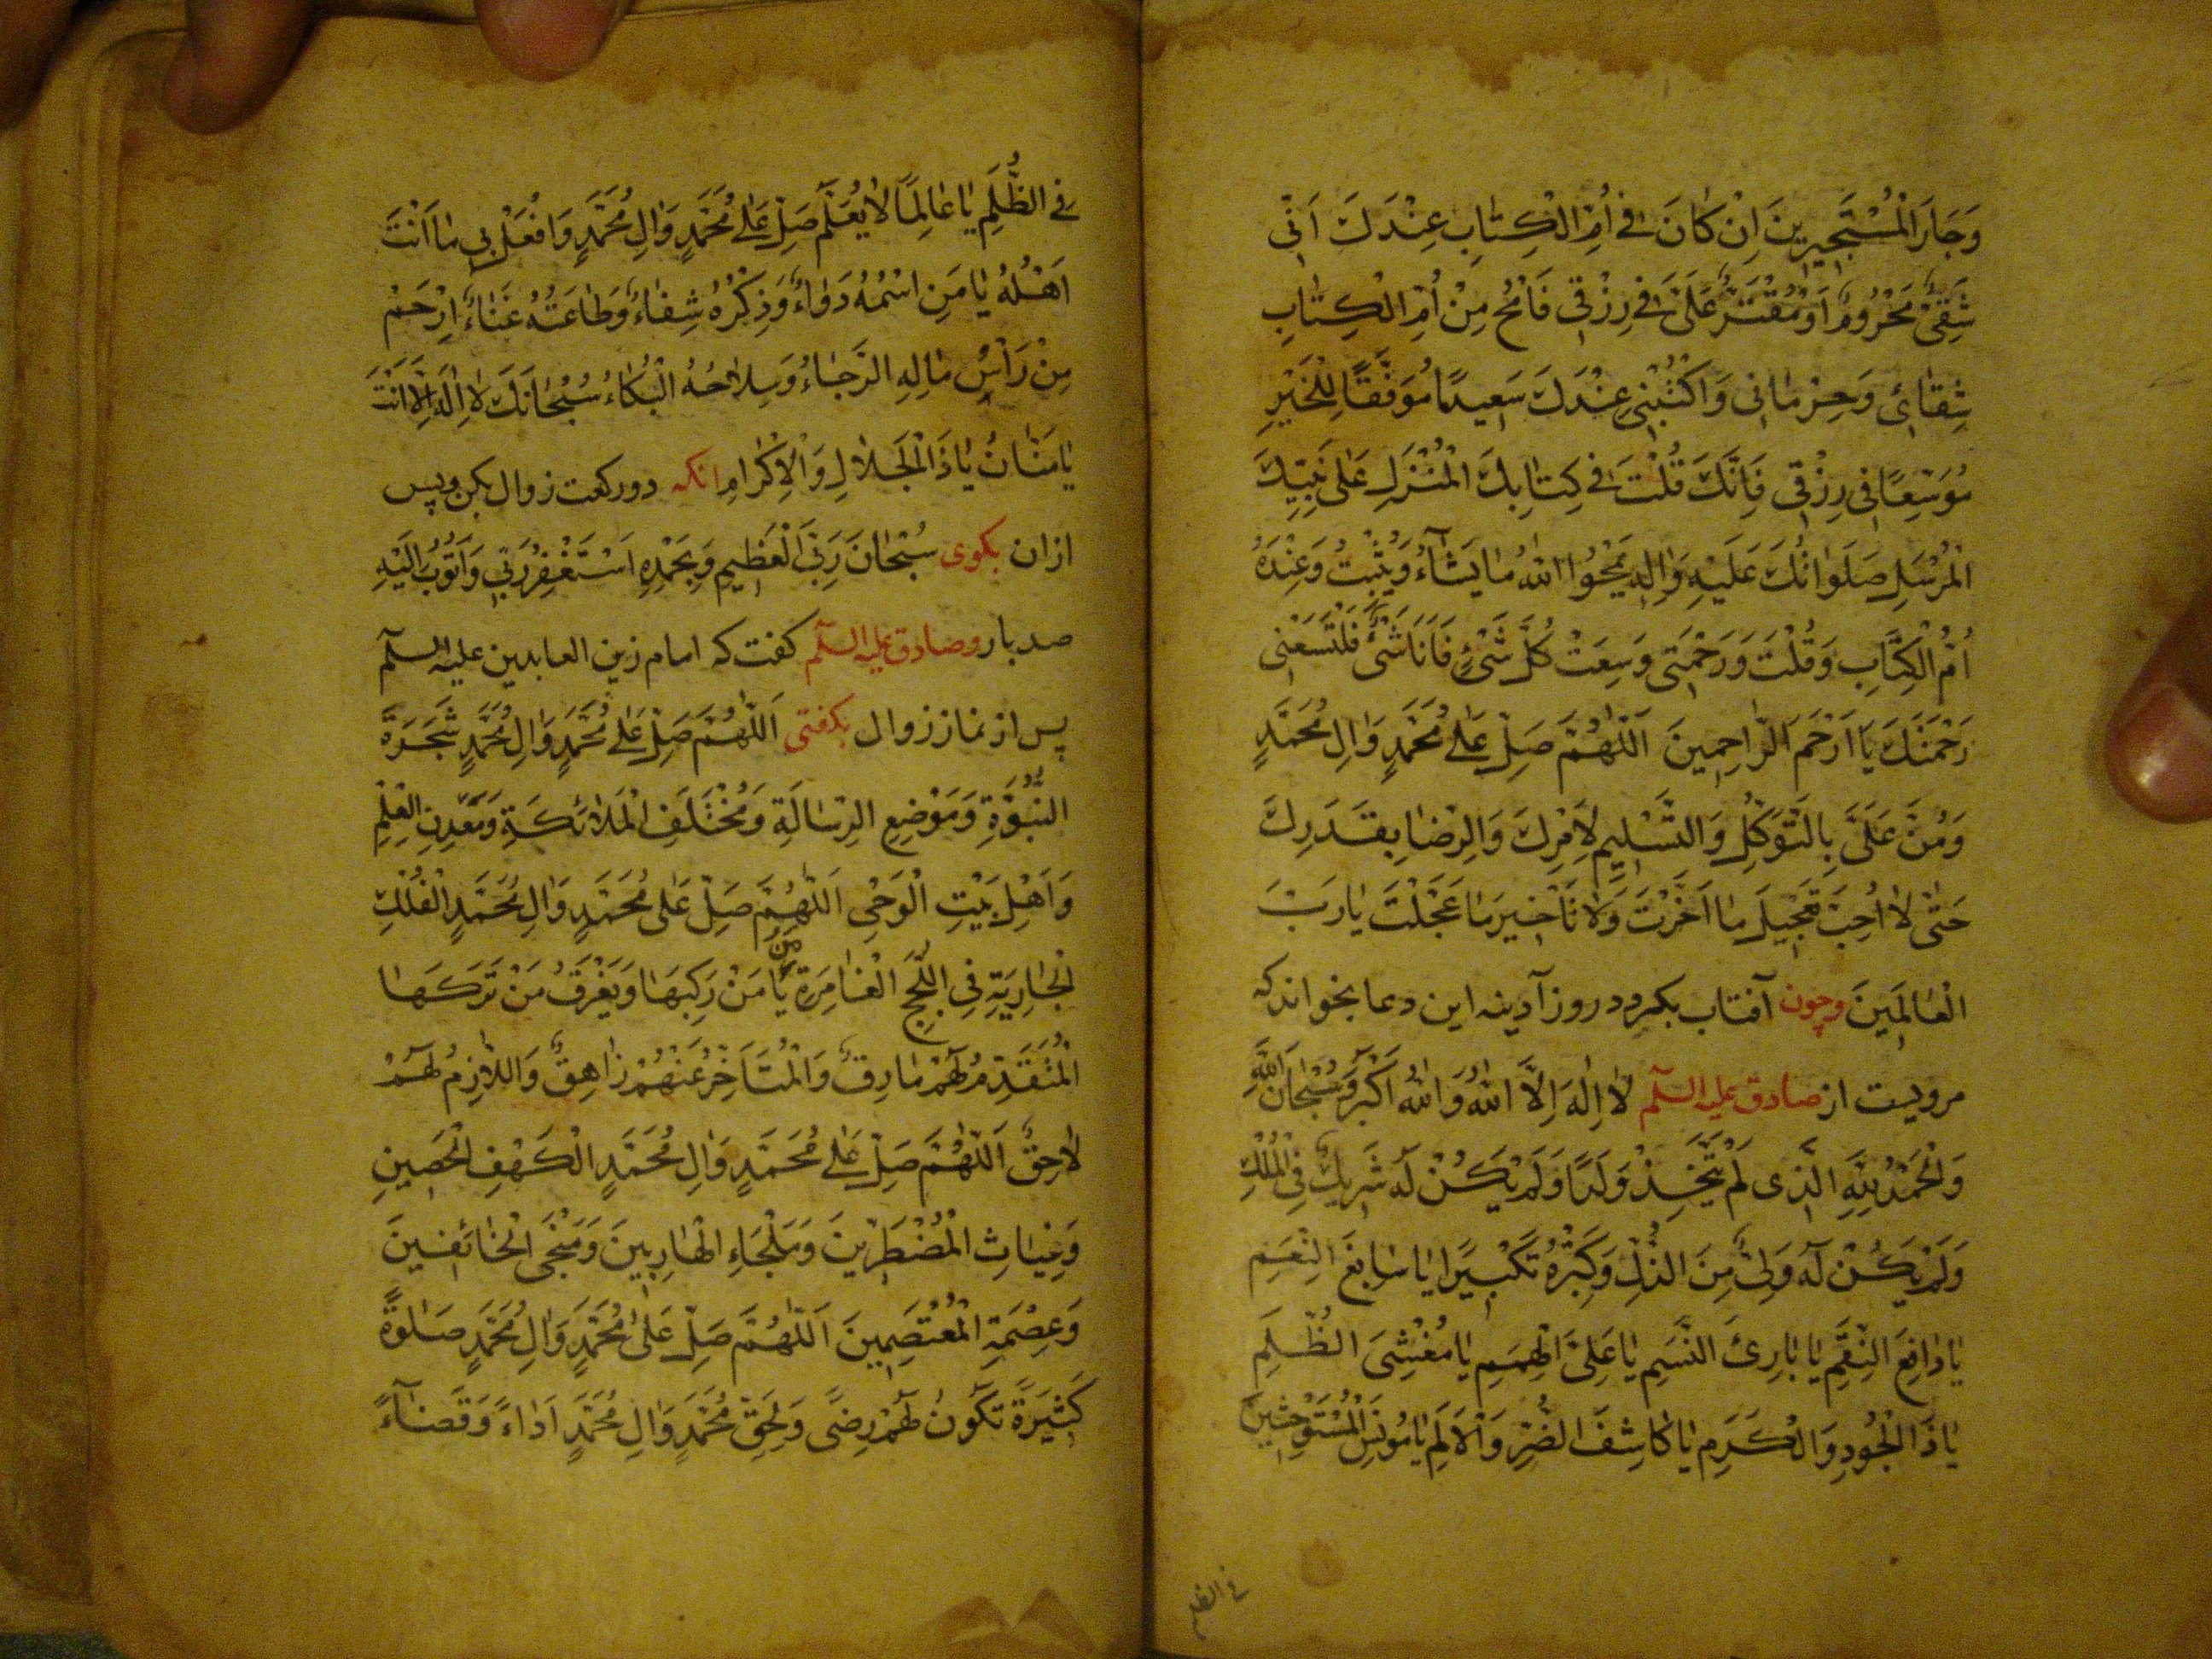 وَجَارَ الْمُسْتَجِيرِينَ اِنْ كَانَ فِي اُمِّ الْكِتَابِ عِنْدَكَ اَنّي
شَقِيٌّ مَحْرُومٌ اَوْ مُقْتَرٌ عَلَيَّ فِي رِزْقي فَامْحُ مِنْ اُمِّ الْكِتَابِ
شِقَائِي وَحِرْمَانِي وَاكْتُبْنِي عِنْدَكَ سَعِيدًا مُوَفَّقًا لِلْخَيْرِ
مُوَسَّعًا فِي رِزْقي فَاِنَّكَ قُلْتَ فِي كِتَابِكَ الْمُنْزَلِ عَلَى نَبِيِّكَ
الْمُرْسَلِ صَلَوَاتُكَ عَلَيْهِ وَالِهِ يَمْحُوا اللهُ مَا يَشَآءُ وَيُثْبِتُ وَعِنْدَهُ
اُمُّ الْكِتَابِ وَقُلْتَ وَرَحْمَتِي وَسِعَتْ كُلَّ شَيْءٍ فَاَنَا شَيْءٌ فَلْتَسَعْنِي
رَحْمَتُكَ يَا اَرْحَمَ الرَّاحِمِينَ اَللّهُمَّ صَلِّ عَلى مُحَمَّدٍ وَالِ مُحَمَّدٍ
وَمُنَّ عَلَيَّ بِالتَّوَكُّلِ وَالتَّسْلِيمِ لِاَمْرِكَ وَالرِّضَا بِقَدَرِكَ
حَتّى لَا اُحِبَّ تَعْجِيلَ مَا اَخَّرْتَ وَلَا تَاْخِيرَ مَا عَجَّلْتَ يَا رَبَّ
الْعَالَمِينَ وچون آفتاب بکردد روز آدینه این دعا بخواند که
مرویست از صادق علیه السلم لَا اِلهَ اِلَّا اللهُ وَاللهُ اَكْبَرُ وَسُبْحَانَ اللهِ
وَالْحَمْدُ لِلّهِ الَّذِي لَمْ يَتَّخِذْ وَلَدًا وَلَمْ يَكُنْ لَهُ شَرِيكٌ فِي الْمُلْكِ
وَلَمْ يَكُنْ لَهُ وَلِيٌّ مِنَ الذُّلِّ وَكَبِّرْهُ تَكْبِيرًا يَا سَابِغَ النِّعَمِ
يَا دَافِعَ النِّقَمِ يَا بَارِئَ النَّسَمِ يَا عَلِيَّ الْهِمَمِ يَا مُغْشِيَ الظُّلَمِ
يَا ذَا الْجُودِ وَالْكَرَمِ يَا كَاشِفَ الضُّرِّ وَالْاَلَمِ يَا مُونِسَ الْمُسْتَوْحِشِينَ
في الظلم
فِي الظُّلَمِ يَا عَالِمًا لَا يُعَلَّمُ صَلِّ عَلى مُحَمَّدٍ وَالِ مُحَمَّدٍ وَافْعَلْ بِي مَا اَنْتَ
اَهْلُهُ يَا مَنِ اسْمُهُ دَوَاءٌ وَذِكْرُهُ شِفَاءٌ وَطَاعَتُهُ غَنَاءٌ اِرْحَمْ
مِنْ رَاْسُ مَالِهِ الرَّجَاءُ وَسِلَاحُهُ الْبُكَاءُ سُبْحَانَكَ لَا اِلَهَ اِلَّا اَنْتَ
يَا مَنَّانُ يَا ذَا الْجَلَالِ وَالْاِكْرَامِ انکه دو رکعت زوال بکن و پس
ازان بکوی سُبْحَانَ رَبِّيَ الْعَظِيمِ وَبِحَمْدِهِ اَسْتَغْفِرُ رَبّي وَاَتُوبُ اِلَيْهِ
صد بار و صادق علیه السلم کفت که امام زین العابدین علیه السلم
پس از نماز زوال بکفتی اَللّهُمَّ صَلِّ عَلى مُحَمَّدٍ وَالِ مُحَمَّدٍ شَجَرَةِ
النُّبُوَّةِ وَمَوْضِعِ الرِّسَالَةِ وَمُخْتَلَفِ الْمَلَائِكَةِ وَمَعْدِنِ الْعِلْمِ
وَاَهْلِ بَيْتِ الْوَحْيِ اَللّهُمَّ صَلِّ عَلى مُحَمَّدٍ وَالِ مُحَمَّدٍ الْفُلْكِ
الْجَارِيَةِ فِي اللُّجَجِ الْغَامِرَةِ يَاْمَنُ مَنْ رَكِبَهَا وَيَغْرَقُ مَنْ تَرَكَهَا
الْمُتَقَدِّمُ لَهُمْ مَارِقٌ وَالْمُتَاَخِّرُ عَنْهُمْ زَاهِقٌ وَاللَّازِمُ لَهُمْ
لَاحِقٌ اَللّهُمَّ صَلِّ عَلى مُحَمَّدٍ وَالِ مُحَمَّدٍ الْكَهْفِ الْحَصِينِ
وَغِيَاثِ الْمُضْطَرِّينَ وَمَلْجَاءِ الْهَارِبِينَ وَمَنْجَى الْخَائِفِينَ
وَعِصْمَةِ الْمُعْتَصِمِينَ اَللّهُمَّ صَلِّ عَلى مُحَمَّدٍ وَالِ مُحَمَّدٍ صَلوةً
كَثِيرَةً تَكُونُ لَهُمْ رِضًى وَلِحَقِّ مُحَمَّدٍ وَالِ مُحَمَّدٍ اَدَاءً وَقَضَآءً